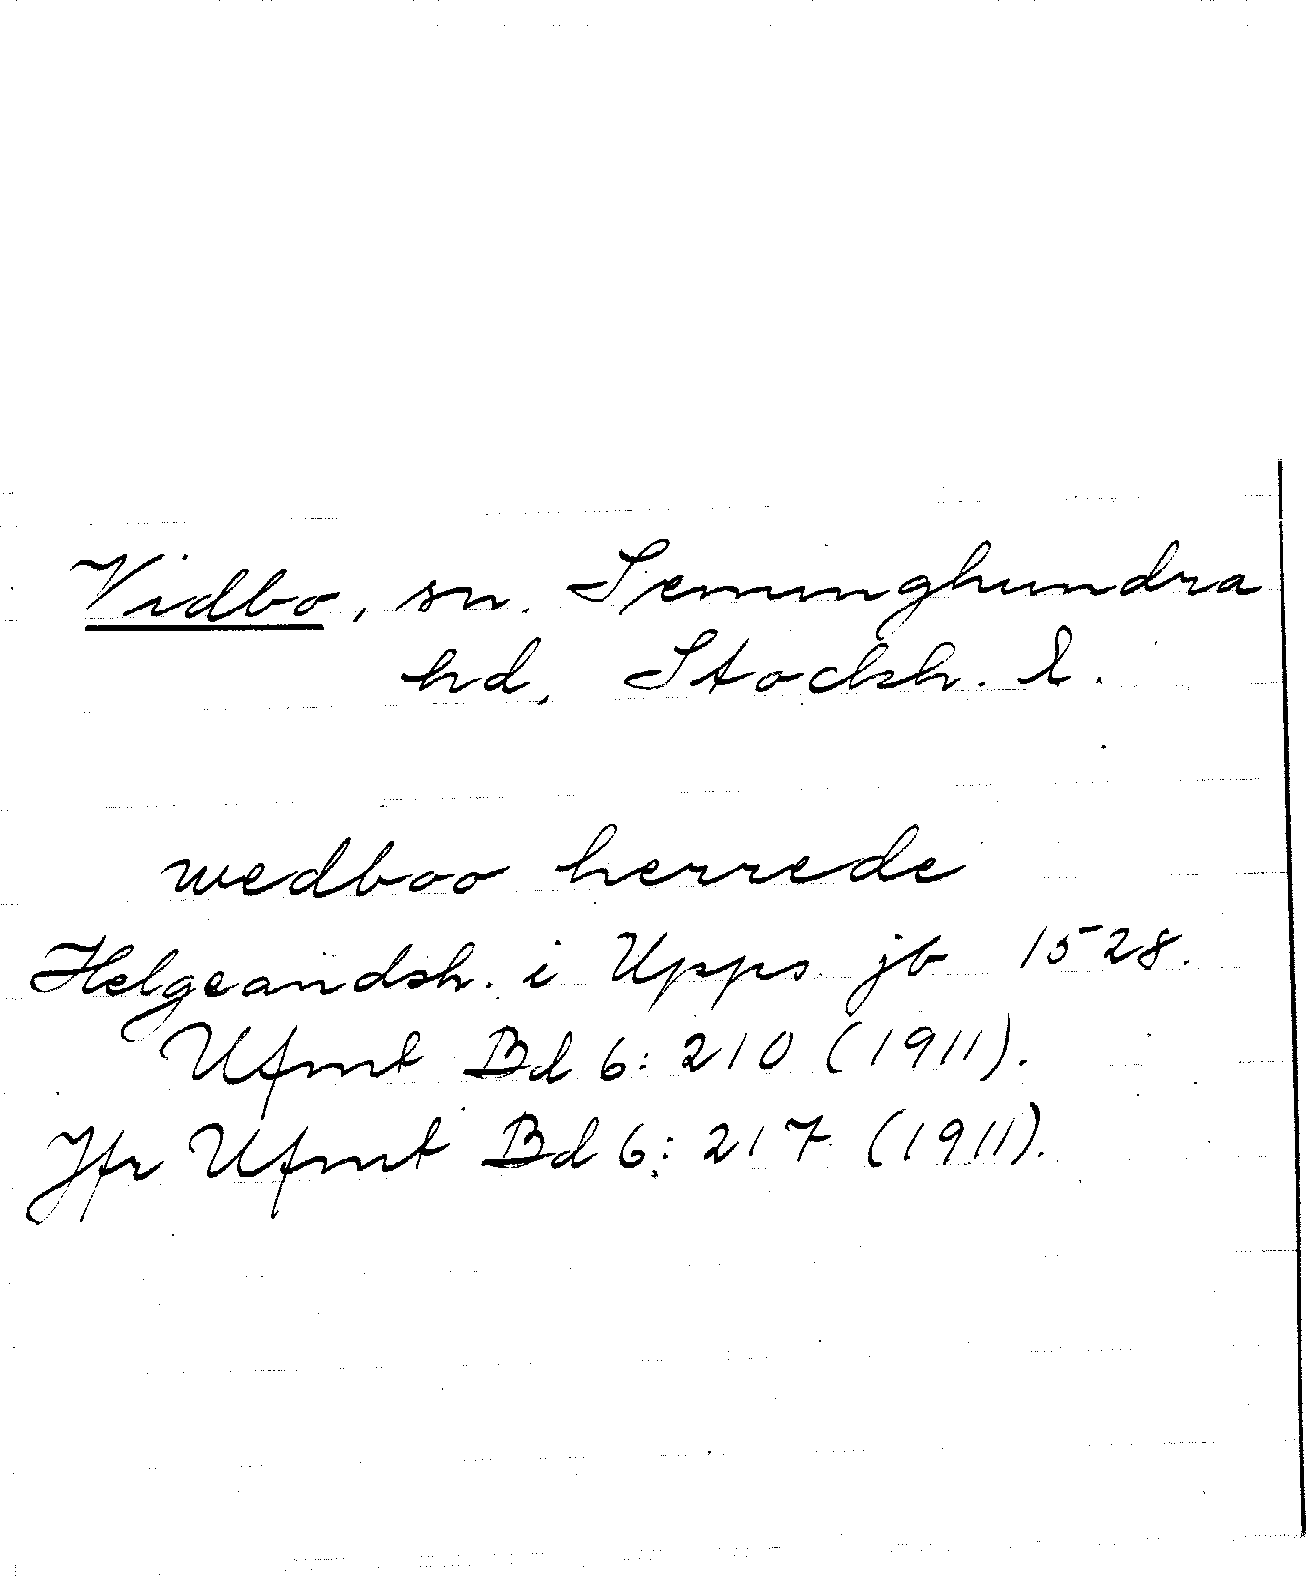 Vidbo, sn. Seminghundra
hd, Stockh. l.
wedboo herrede
Helgeandsh. i Upps. jb 1528.
Ufmt Bd 6: 210 (1911).
Jfr Ufmt Bd 6: 217 (1911).